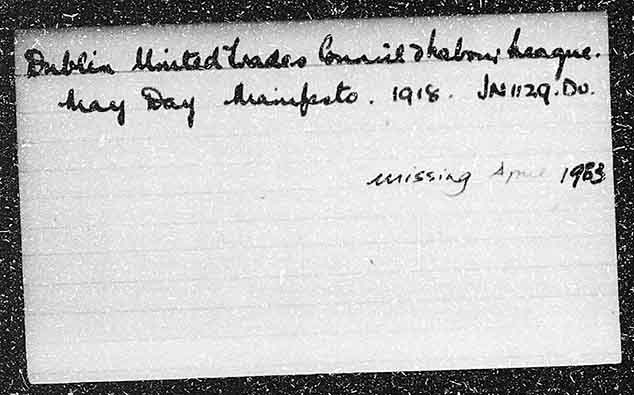 Dublin United Trades Council & Labour League.
May Day Manifesto. 1918. JN1129.Du.
missing April